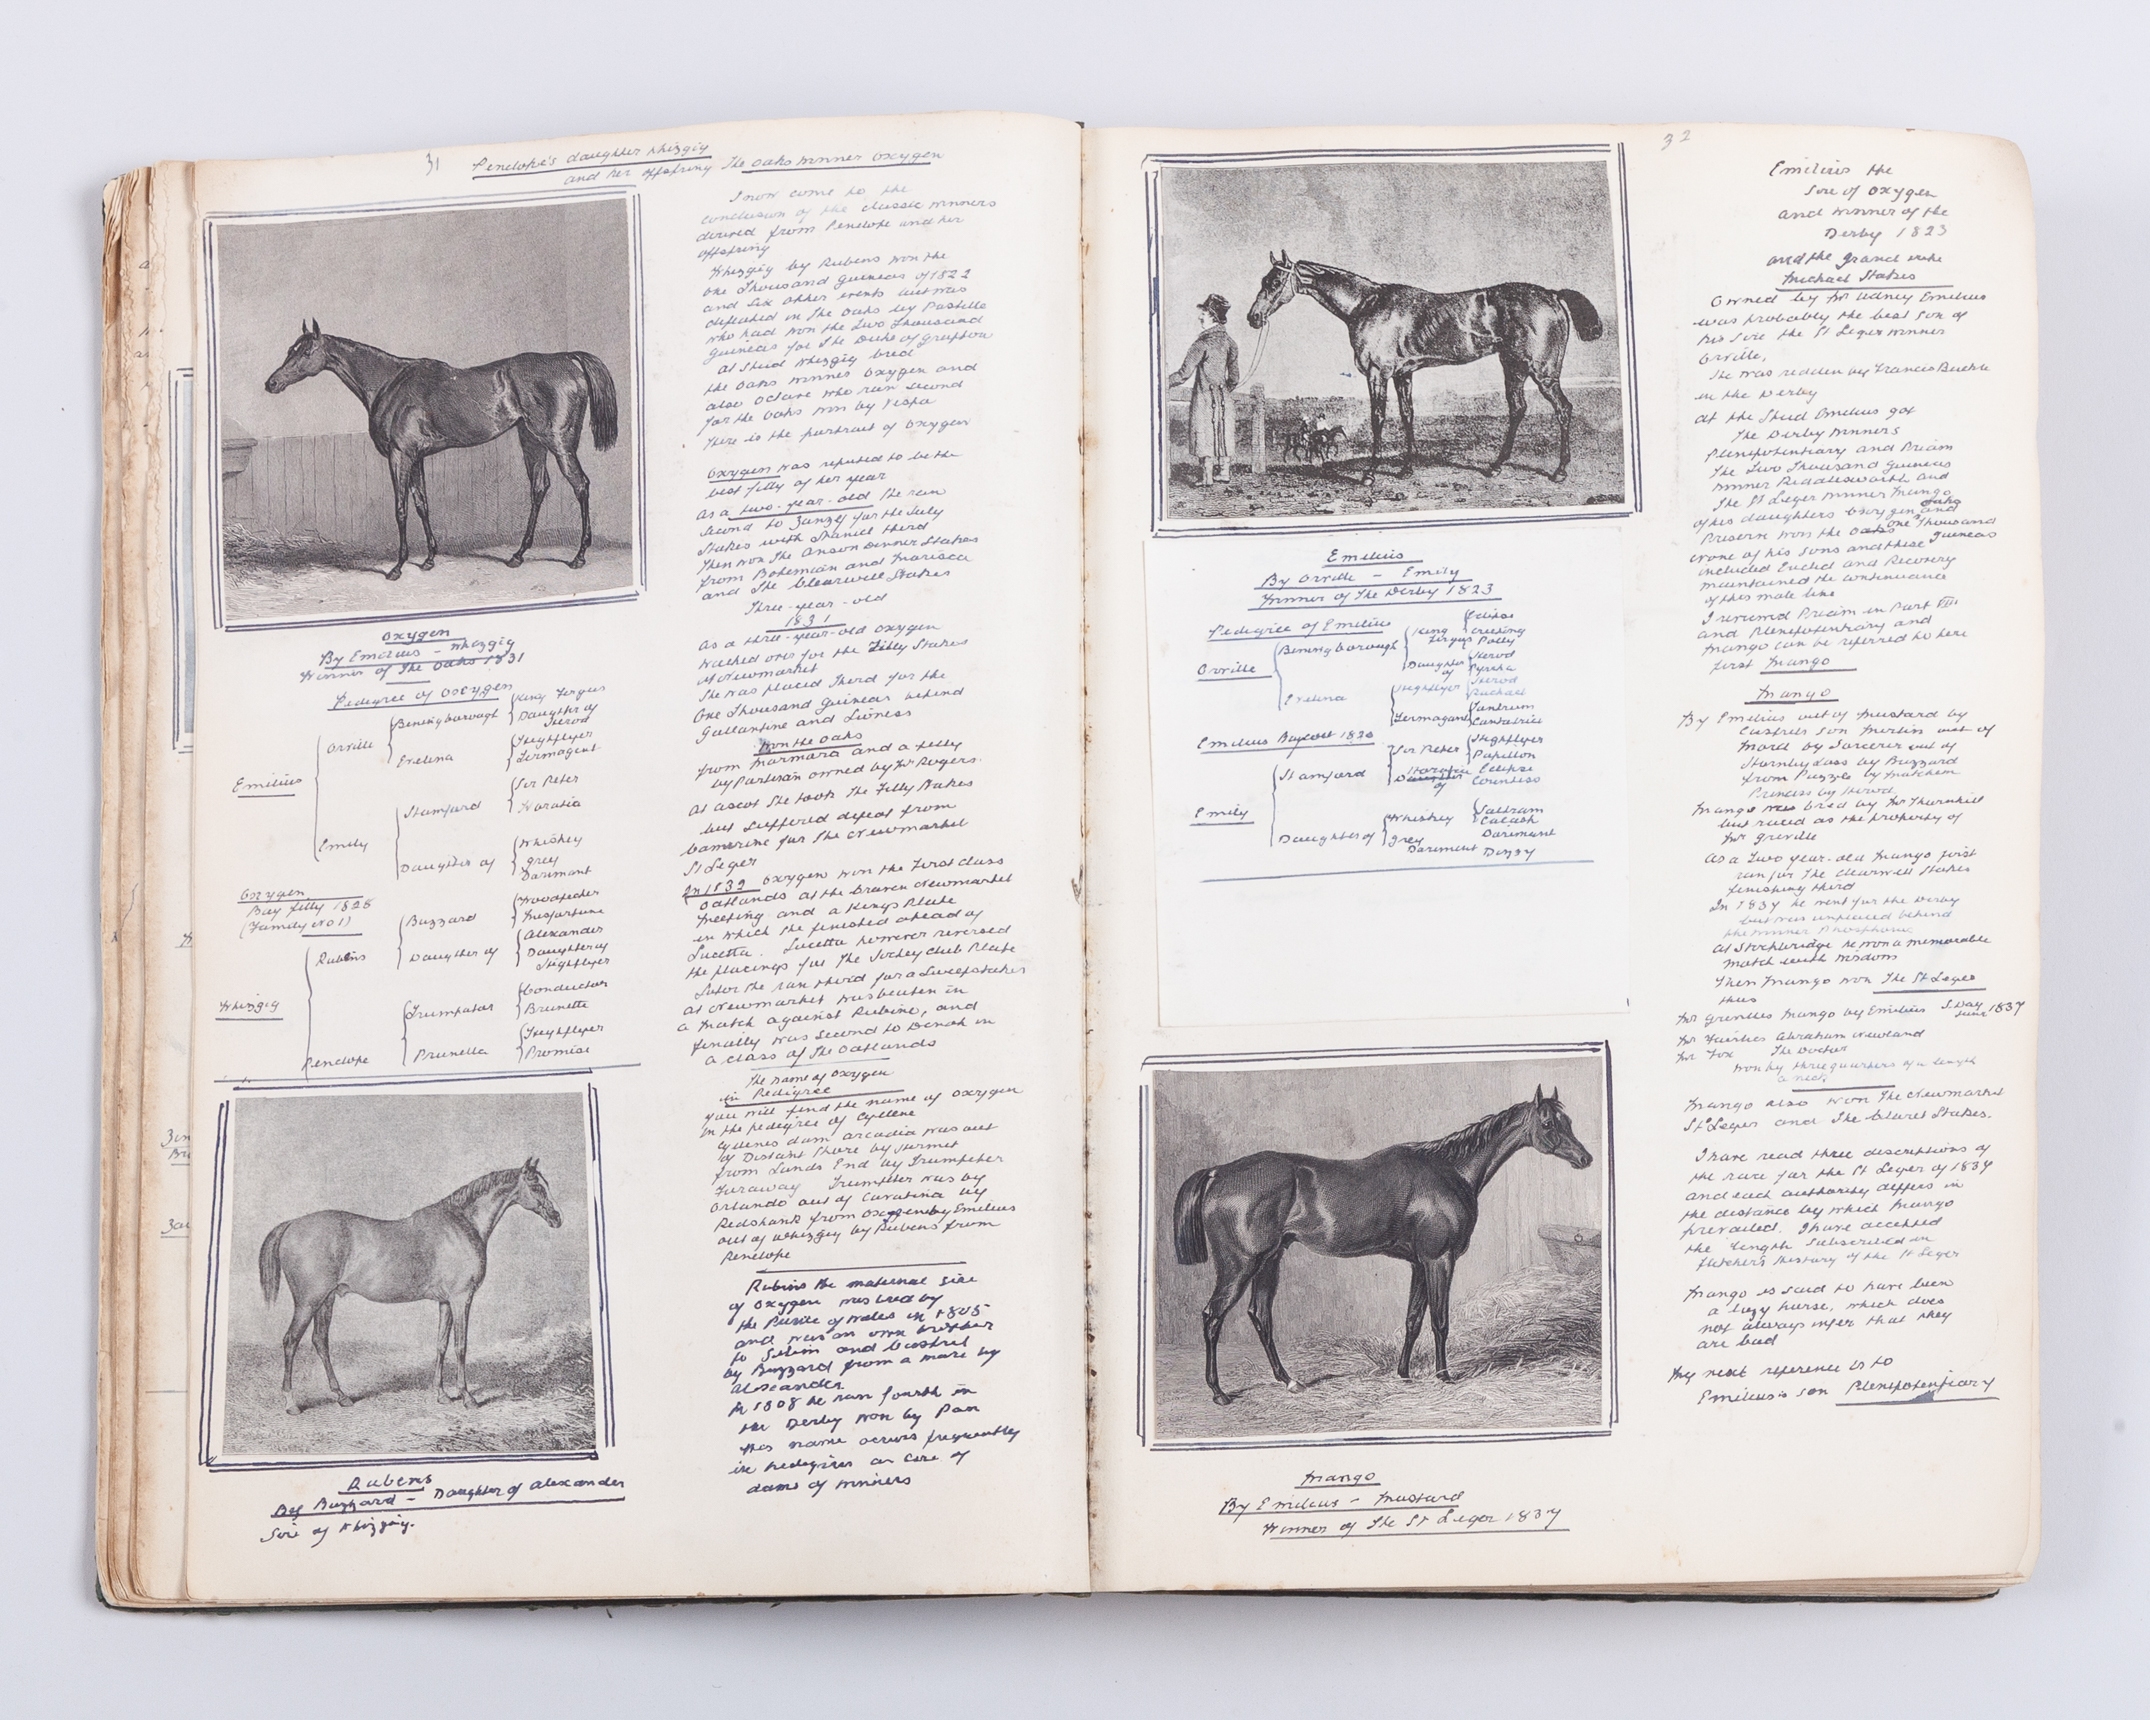 31
Penelope's daughter Whizgig
and her offspring The Oaks winner Oxygen
Oxygen
By Emilius - Whizgig
Winner of The Oaks 1831
Pedigree of Oxygen
Emilius
Orville
Beningborough
King Fergus
Daughter of
Herod
Evelina
Highflyer
Termagent
Emily
Stamford
Sir Peter
Horatia
Daughter of
Whiskey
Grey
Dorimant
Oxygen
Bay filly 1828
(Family No 1)
Whizgig
Rubens
Buzzard
Woodpecker
Misfortune
Daughter of
Alexander
Daughter of
Highflyer
Penelope
Trumpator
Conductor
Brunette
Prunella
Highflyer
Promise
Rubens
By Buzzard - Daughter of Alexander
Sire of Whizgig.
I now come to the
conclusion of the classic winners
derived from Penelope and her
offspring
Whizgig by Rubens won the
One Thousand Guineas of 1822
and six other events but was
defeated in The Oaks by Pastille
who had won the Two Thousand
Guineas for The Duke of Grafton
At Stud Whizgig bred
the Oaks winner Oxygen and
also Octave who ran second
for the Oaks won by Vespa
There is the portrait of Oxygen
Oxygen was reputed to be the
best filly of her year
As a two-year-old she ran
second to Zanzey for the July
Stakes with third
Then won The Anson Dinner Stakes
from Bohemian and Marisca
and The Clearwell Stakes
Three-year-old
1831
As a three-year-old Oxygen
walked over for the Filly Stakes
at Newmarket
She was placed third for the
One Thousand Guineas behind
Galantine and Lioness
Won the Oaks
from Marmora and a filly
by Partisan owned by Mr Rogers.
At Ascot she took The Filly Stakes
but suffered defeat from
Camarine for The Newmarket
St Leger
In 1832 Oxygen won the First Class
Oatlands at the Craven Newmarket
Meeting and a Kings Plate
in which she finished ahead of
Lucetta. Lucetta however reversed
the placings for The Jockey Club Plate
Later she ran third for a Sweepstakes
at Newmarket was beaten in
a match against Rubini, and
finally was second to in
a class of The Oatlands
The name of Oxygen
in Pedigree
You will find the name of Oxygen
in the pedigree of Cyllene
Cyllenes dam Arcadia was out
of Distant Shore by Hermit
from Lands End by Trumpeter
Faraway Trumpeter was by
Orlando out of Cavatina by
Redshank from Oxygen by Emilius
out of Whizgig by Rubens from
Penelope
Rubens the maternal sire
of Oxygen was bred by
the Prince of Wales in 1805
and was an own brother
to Selim and Castrel
by Buzzard from a mare by
Alexander
In 1808 he ran fourth in
the Derby won by Pan
His name occurs frequently
in pedigrees as sire of
dams of winners
32
Emilius
By Orville - Emily
Winner of The Derby 1823
Pedigree of Emilius
Orville
Beningborough
King
Fergus
Eclipse
Creeping
Polly
Daughter
of
Herod
Pyrrha
Evelina
Highflyer
Herod
Rachael
Termagant
Tantrum
Cantatrice
Emilius Bay colt 1820
Emily
Stamford
Sir Peter
Highflyer
Papillon
Horatia
Daughter
of
Eclipse
Countess
Daughter of
Whiskey
Saltram
Calash
Grey
Dorimant
Dorimant
Dizzy
Mango
By Emilius - Mustard
Winner of The St Leger 1837
Emilius the
Sire of Oxygen
and winner of the
Derby 1823
and the Grand Duke
Michael Stakes
Owned by Mr Udney Emilius
was probably the best son of
his sire the St Leger winner
Orville,
He was ridden by Francis Buckle
in the Derby
At the Stud Emilius got
The Derby winners
Plenipotentiary and Priam
The Two Thousand Guineas
winner Riddlesworth and
The St Leger winner Mango
of his daughters Oxygen and
Oaks
Preserve won the Oaks One Thousand
Guineas
None of his sons and these
included Euclid and Recovery
maintained the continuance
of this male line
I reviewed Priam in Part VIII
and Plenipotentiary and
Mango can be referred to here
first Mango
Mango
By Emilius out of Mustard by
Castrels son Merlin out of
Morel by Sorcerer out of
Hornby Lass by Buzzard
from Puzzle by Matchem
Princess by Herod.
Mango was bred by Mr Thornhill
but raced as the property of
Mr Greville
As a Two year-old Mango first
ran for The Clearwell Stakes
finishing third
In 1837 he went for the Derby
but was unplaced behind
the winner Phosphorus
At Stockbridge he won a memorable
match with Wisdom
Then Mango won The St Leger
thus
Mr Grevilles Mango by Emilius S. Day
Junr 1837
Mr Fairlies Abraham Newland
Mr Fox The Doctor
Won by three quarters of a length
a neck
Mango also won The Newmarket
St Leger and The Claret Stakes.
I have read three descriptions of
the race for the St Leger of 1837
and each authority differs in
the distance by which Mango
prevailed. I have accepted
the length subscribed in
Fletchers History of the St Leger
Mango is said to have been
a lazy horse, which does
not always infer that they
are bad
My next reference is to
Emilius's son Plenipotentiary